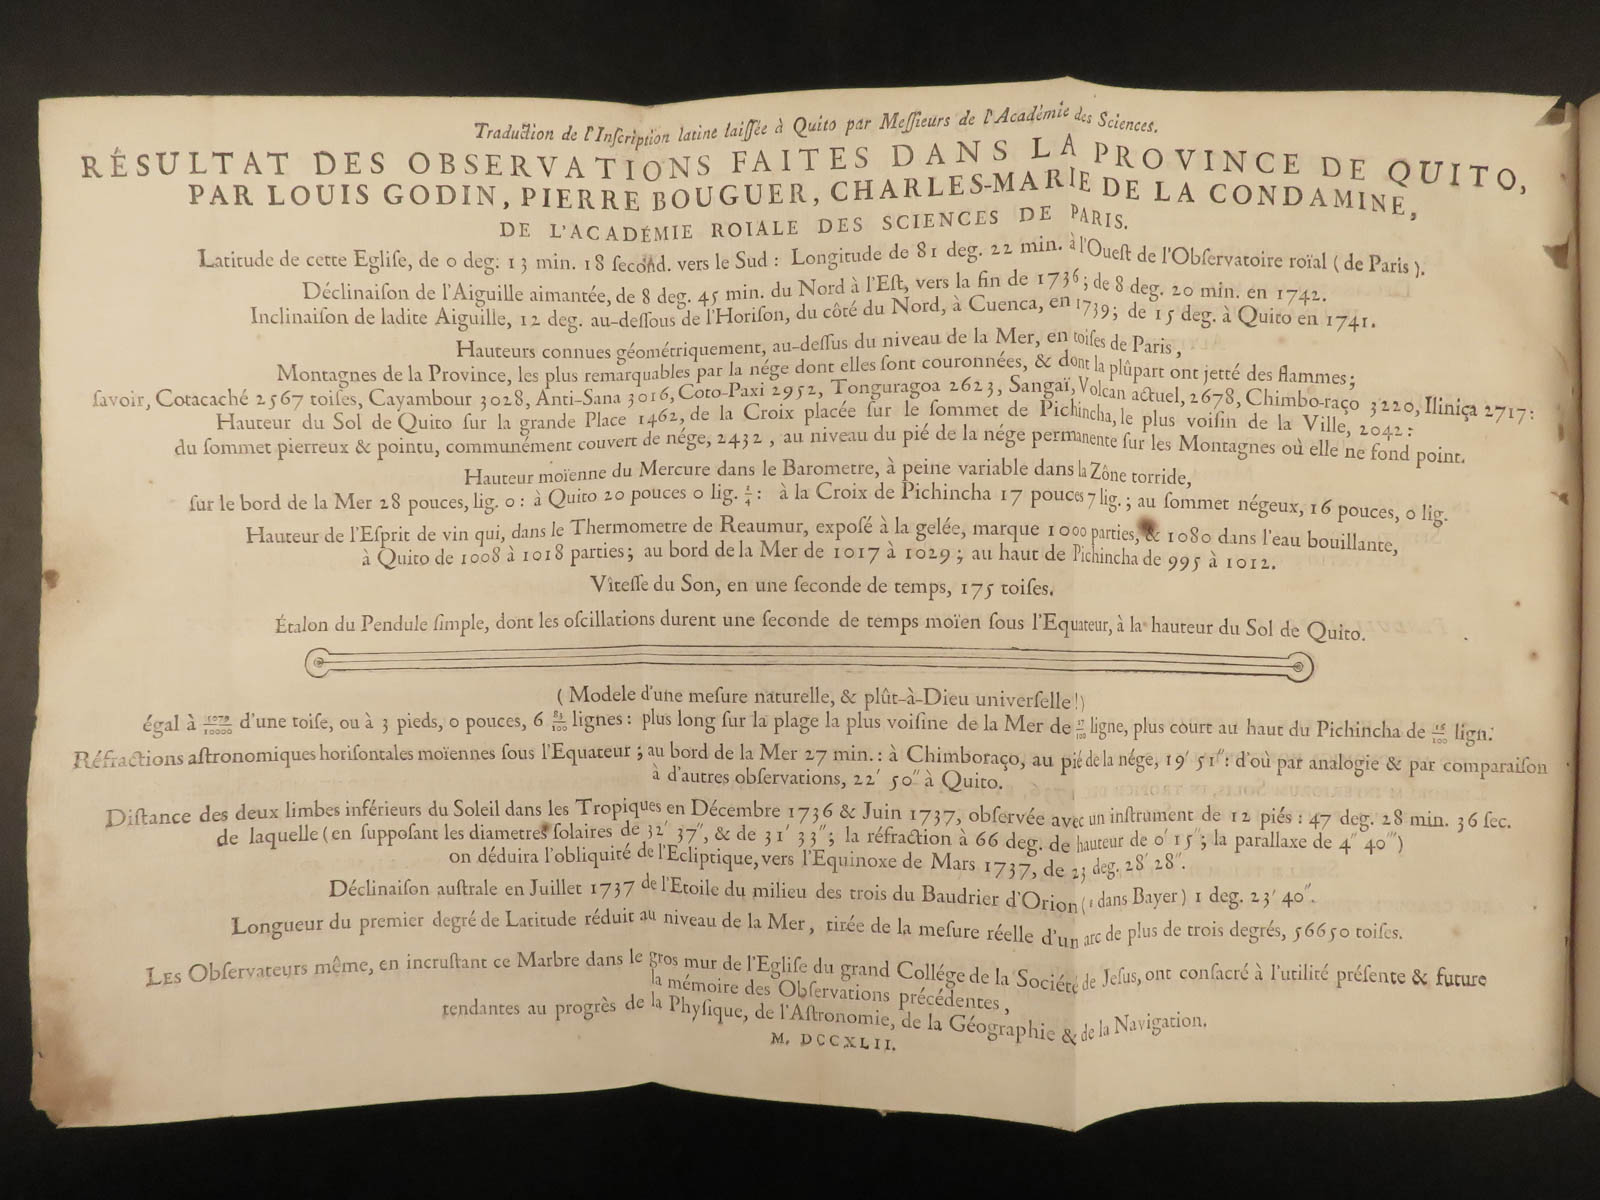 Traduction de l'Inſcription latine laiſſée à Quito par Meſſieurs de l'Académie des Sciences.
RÉSULTAT DES OBSERVATIONS FAITES DANS LA PROVINCE DE QUITO,
PAR LOUIS GODIN, PIERRE BOUGUER, CHARLES-MARIE DE LA CONDAMINE,
DE L'ACADÉMIE ROIALE DES SCIENCES DE PARIS.
Latitude de cette Egliſe, de 0 deg. 13 min. 18 ſecond. vers le Sud : Longitude de 81 deg. 22 min. à l'Oueſt de l'Obſervatoire roïal ( de Paris ).
Déclinaiſon de l'Aiguille aimantée, de 8 deg. 45 min. du Nord à l'Eſt, vers la fin de 1736; de 8 deg. 20 min. en 1742.
Inclinaiſon de ladite Aiguille, 12 deg. au-deſſous de l'Horiſon, du côté du Nord, à Cuenca, en 1739; de 15 deg. à Quito en 1741.
Hauteurs connues géométriquement, au-deſſus du niveau de la Mer, en toiſes de Paris,
Montagnes de la Province, les plus remarquables par la nége dont elles ſont couronnées, & dont la plûpart ont jetté des flammes;
ſavoir, Cotacaché 2567 toiſes, Cayambour 3028, Anti-Sana 3016, Coto-Paxi 2952, Tonguragoa 2623, Sangaï, Volcan actuel, 2678, Chimbo-raço 3220, Iliniça 2717:
Hauteur du Sol de Quito ſur la grande Place 1462, de la Croix placée ſur le ſommet de Pichincha, le plus voiſin de la Ville, 2042:
du ſommet pierreux & pointu, communément couvert de nége, 2432, au niveau du pié de la nége permanente ſur les Montagnes où elle ne fond point.
Hauteur moïenne du Mercure dans le Barometre, à peine variable dans la Zône torride,
ſur le bord de la Mer 28 pouces, lig. 0 : à Quito 20 pouces 0 lig. ¼ : à la Croix de Pichincha 17 pouces 7 lig.; au ſommet négeux, 16 pouces, 0 lig.
Hauteur de l'Eſprit de vin qui, dans le Thermometre de Reaumur, expoſé à la gelée, marque 1000 parties, & 1080 dans l'eau bouillante,
à Quito de 1008 à 1018 parties; au bord de la Mer de 1017 à 1029; au haut de Pichincha de 995 à 1012.
Vîteſſe du Son, en une ſeconde de temps, 175 toiſes.
Étalon du Pendule ſimple, dont les oſcillations durent une ſeconde de temps moïen ſous l'Equateur, à la hauteur du Sol de Quito.
( Modele d'une meſure naturelle, & plût-à-Dieu univerſelle!)
égal à 1079/10000 d'une toiſe, ou à 3 pieds, 0 pouces, 6 83/100 lignes : plus long ſur la plage la plus voiſine de la Mer de /100 ligne, plus court au haut du Pichincha de 16/100 lign:
Réfractions aſtronomiques horiſontales moïennes ſous l'Equateur; au bord de la Mer 27 min.: à Chimboraço, au pié de la nége, 19′ 51″: d'où par analogie & par comparaiſon
à d'autres obſervations, 22′ 50″ à Quito.
Diſtance des deux limbes inférieurs du Soleil dans les Tropiques en Décembre 1736 & Juin 1737, obſervée avec un inſtrument de 12 piés : 47 deg. 28 min. 36 ſec.
de laquelle (en ſuppoſant les diametres ſolaires de 32′ 37″, & de 31′ 33″; la réfraction à 66 deg. de hauteur de 0′ 15″; la parallaxe de 4″ 40‴)
on déduira l'obliquité de l'Ecliptique, vers l'Equinoxe de Mars 1737, de 23 deg. 28′ 28″.
Déclinaiſon auſtrale en Juillet 1737 de l'Etoile du milieu des trois du Baudrier d'Orion ( dans Bayer ) 1 deg. 23′ 40″.
Longueur du premier degré de Latitude réduit au niveau de la Mer, tirée de la meſure réelle d'un arc de plus de trois degrés, 56650 toiſes.
LES Obſervateurs même, en incruſtant ce Marbre dans le gros mur de l'Egliſe du grand Collége de la Société de Jeſus, ont conſacré à l'utilité préſente & future
la mémoire des Obſervations précédentes,
tendantes au progrès de la Phyſique, de l'Aſtronomie, de la Géographie & de la Navigation.
M. DCCXLII.